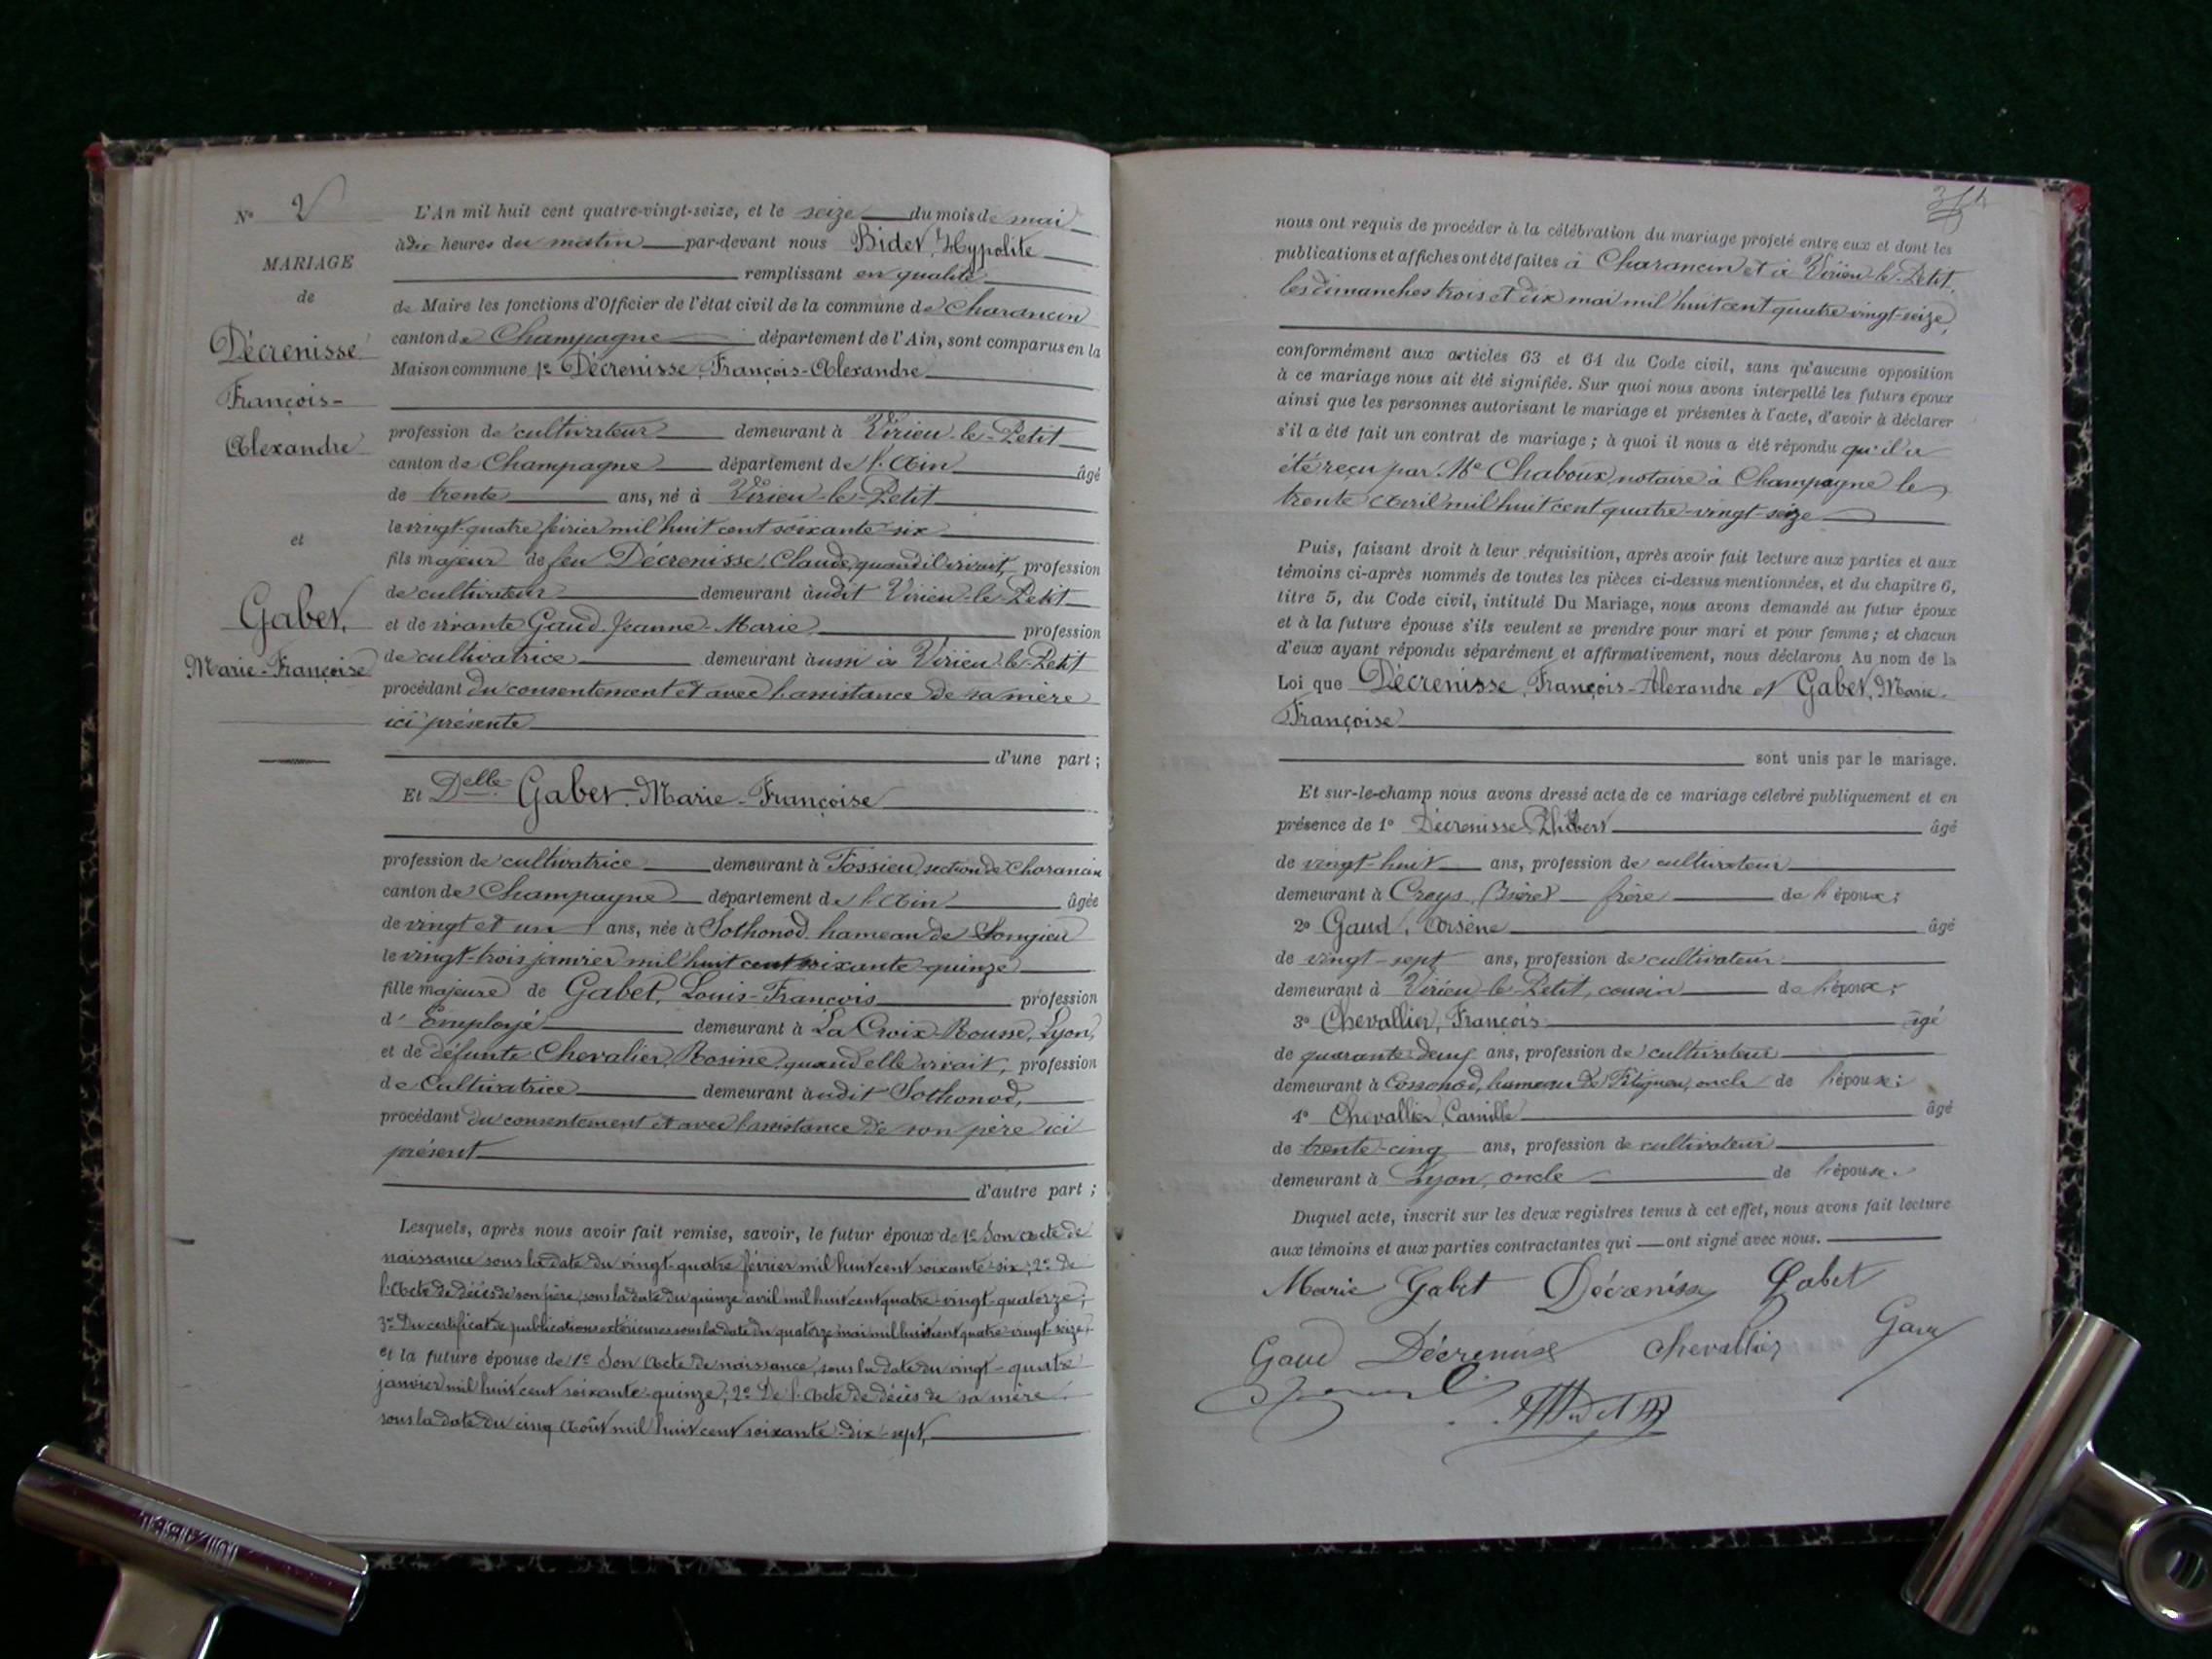 N° 2
MARIAGE
de
Décrenisse
François-
Alexandre
et
Gabet,
Marie-Françoise
L'An mil huit cent quatre-vingt-seize, et le seize du mois de mai
à dix heures du matin par-devant nous Bidet, Hypolite
remplissant en qualité
de Maire les fonctions d'Officier de l'état civil de la commune de Charancin
canton de Champagne département de l'Ain, sont comparus en la
Maison commune 1° Décrenisse, François-Alexandre
profession de cultivateur demeurant à Virieu-le-Petit
canton de Champagne département de l'Ain âgé
de trente ans, né à Virieu-le-Petit
le vingt-quatre février mil huit cent soixante-six
fils majeur de feu Décrenisse, Claude, quand il vivait, profession
de cultivateur demeurant audit Virieu-le-Petit
et de vivante Gaud, Jeanne-Marie profession
de cultivatrice demeurant aussi à Virieu-le-Petit
procédant du consentement et avec l'assistance de sa mère
ici présente
d'une part ;
Et Delle Gabet, Marie-Françoise
profession de cultivatrice demeurant à Fossieu, section de Charancin
canton de Champagne département de l'Ain âgée
de vingt et un ans, née à Sothonod, hameau de Songieu
le vingt-trois janvier mil huit cent soixante-quinze
fille majeure de Gabet, Louis-François profession
d'Employé demeurant à La Croix-Rousse, Lyon,
et de défunte Chevalier, Rosine, quand elle vivait, profession
de Cultivatrice demeurant audit Sothonod,
procédant du consentement et avec l'assistance de son père ici
présent
d'autre part ;
Lesquels, après nous avoir fait remise, savoir, le futur époux de 1° Son Acte de
naissance sous la date du vingt-quatre février mil huit cent soixante-six ; 2° De
l'Acte de décès de son père, sous la date du quinze avril mil huit cent quatre-vingt-quatorze ;
3° Du certificat de publications extérieures sous la date du quatorze mai mil huit cent quatre-vingt-seize ;
et la future épouse de 1° Son Acte de naissance, sous la date du vingt-quatre
janvier mil huit cent soixante-quinze ; 2° De l'Acte de décès de sa mère
sous la date du cinq Août mil huit cent soixante-dix-sept,
nous ont requis de procéder à la célébration du mariage projeté entre eux et dont les
publications et affiches ont été faites à Charancin et à Virieu-le-Petit,
les dimanches trois et dix mai mil huit cent quatre vingt-seize,
conformément aux articles 63 et 64 du Code civil, sans qu'aucune opposition
à ce mariage nous ait été signifiée. Sur quoi nous avons interpellé les futurs époux
ainsi que les personnes autorisant le mariage et présentes à l'acte, d'avoir à déclarer
s'il a été fait un contrat de mariage ; à quoi il nous a été répondu qu'il a
été reçu par Me Chaboux, notaire à Champagne le
trente Avril mil huit cent quatre-vingt-seize
Puis, faisant droit à leur réquisition, après avoir fait lecture aux parties et aux
témoins ci-après nommés de toutes les pièces ci-dessus mentionnées, et du chapitre 6,
titre 5, du Code civil, intitulé Du Mariage, nous avons demandé au futur époux
et à la future épouse s'ils veulent se prendre pour mari et pour femme ; et chacun
d'eux ayant répondu séparément et affirmativement, nous déclarons Au nom de la
Loi que Décrenisse, François-Alexandre et Gabet, Marie-
Françoise
sont unis par le mariage.
Et sur-le-champ nous avons dressé acte de ce mariage célébré publiquement et en
présence de 1° Décrenisse Philibert âgé
de vingt-huit ans, profession de cultivateur
demeurant à frère de l'époux ;
2° Gaud, Arsène âgé
de vingt-sept ans, profession de cultivateur
demeurant à Virieu-le-Petit, cousin de l'époux ;
3° Chevallier, François âgé
de quarante-deux ans, profession de cultivateur
demeurant à hameau de oncle de l'épouse ;
4° Chevallier, Camille âgé
de trente-cinq ans, profession de cultivateur
demeurant à Lyon, oncle de l'épouse.
Duquel acte, inscrit sur les deux registres tenus à cet effet, nous avons fait lecture
aux témoins et aux parties contractantes qui ont signé avec nous.
Marie Gabet Décrenisse Gabet
Gaud Décrenisse Chevallier